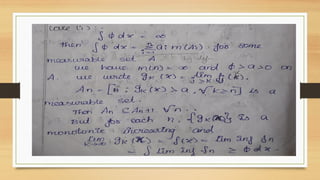 case (i) :-
∫ Φ dx = ∞
then ∫ Φ dx = Σ aᵢ m(Aᵢ) for some
measurable set A
we have m(A) = ∞ and Φ > a > 0 on
A. we write gₖ(x) =
An = [x; gₖ(x) > a, ∀ k ≥ n] is a
measurable set.
Then An ⊂ An+1 ∀ n.
But for each n, {gₖ(x)} is a
monotonic increasing and
lim k→∞ gₖ(x) = f(x) = lim inf fn
= ∫ lim inf fn ≥ Φ dx.